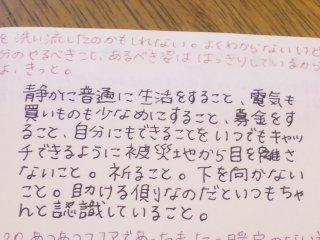 を洗い流したのかもしれない。よくわからないけど
分のやるべきこと、あるべき姿ははっきりしているから
よ、きっと。
静かに普通に生活をすること、電気も
買いものも少なめにすること、募金をす
ること、自分にもできることをいつでもキャッ
チできるように被災地から目を離さ
ないこと。祈ること。下を向かない
こと。助ける側なのだといつもちゃ
んと認識していること。